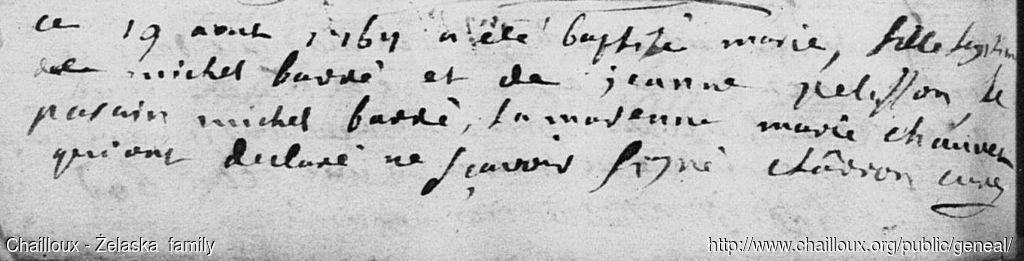 ce 19 aout 1767 a été baptisé marie, fille legitim
de michel barré et de jeanne pelisson le
parain michel barré, la marenne marie chauvet
qui ont declaré ne sçavoir signé chârron curé
Chailloux - Żelaska family http://www.chailloux.org/public/geneal/